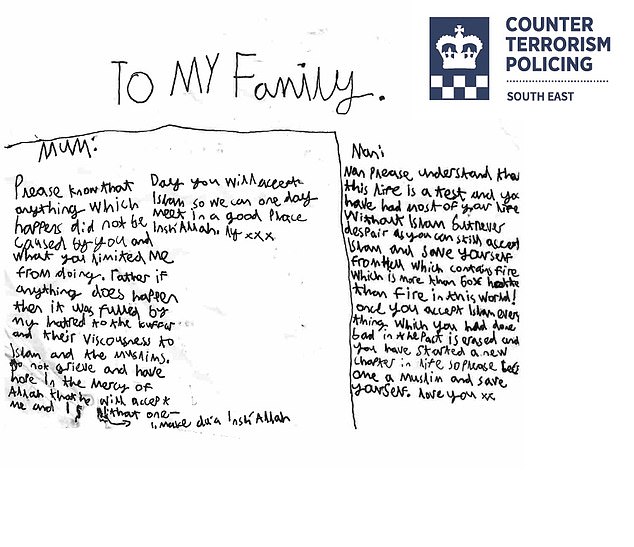 COUNTER
TERRORISM
POLICING
SOUTH EAST
TO MY Family.
MUM:
Please know that
anything which
happens did not be
caused by you and
what you limited me
from doing. rather if
anything does happen
then it was fulled by
my hatred to the kuffar
and their viscousness to
Islam and the muslims.
Do not grieve and have
hope in the mercy of
Allah that he will accept
me and
Day you will accept
Islam so we can one day
meet in a good place
Insh'Allah. ly xxx
one
I make du'a Insh'Allah
Nan:
Nan please understand tha
this life is a test and yo
have had most of your life
without Islam but never
despair as you can still accept
Islam and save yourself
from Hell which contains fire
which is more than 60x
than fire in this world!
once you accept Islam every
thing which you had done
bad in the Past is erased and
you have started a new
chapter in life so please
one a muslim and save
yourself. love you xx